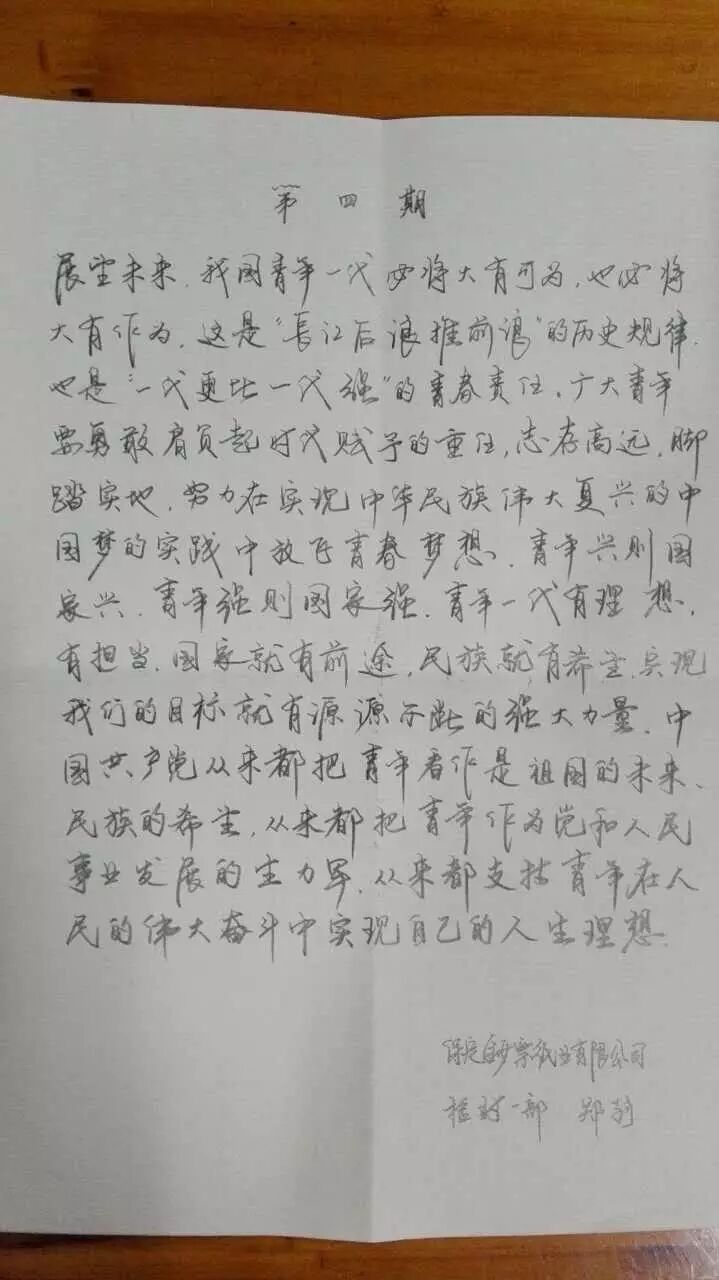 第四期
展望未来,我国青年一代必将大有可为,也必将
大有作为,这是“長江后浪推前浪”的历史规律,
也是“一代更比一代强”的青春责任。广大青年
要勇敢肩负起时代赋予的重任,志存高远,脚
踏实地,努力在实现中华民族伟大复兴的中
国梦的实践中放飞青春梦想。青年兴则国
家兴,青年强则国家强。青年一代有理想,
有担当,国家就有前途,民族就有希望,实现
我们的目标就有源源不断的强大力量。中
国共产党从来都把青年看作是祖国的未来、
民族的希望,从来都把青年作为党和人民
事业发展的生力军,从来都支持青年在人
民的伟大奋斗中实现自己的人生理想。
保定钞票纸业有限公司
检封一部 郑